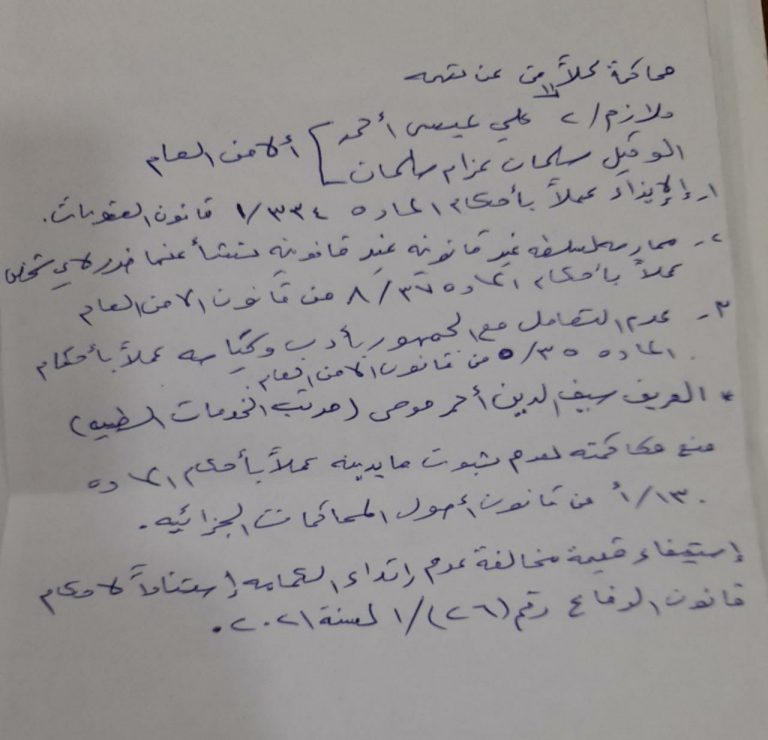 محاكمة كلاً من عن تهمه
ملازم/٢ علي عيسى أحمد
الوكيل سلمان عزام سلمان [ ألامن العام
١- إلإيذاء عملاً بأحكام الماده ٣٣٤/١ قانون العقوبات.
٢- ممارسه سلطه غير قانونه غير قانونيه تنشأ عنها ضرر لاي شخص
عملاً بأحكام الماده ٣٧/٨ من قانون الامن العام
٣- عدم التعامل مع الجمهور بأدب وكياسه عملاً بأحكام
الماده ٣٥/٥ من قانون الامن العام.
* العريف سيف الدين أحمد موسى (مرتب الخدمات الطبيه)
منع محاكمته لعدم ثبوت ما يدينه عملاً بأحكام الماده
١٣٠/أ من قانون أصول المحاكمات الجزائيه.
إستيفاء قيمة مخالفة عدم إرتداء الكمامه إستناداً لاحكام
قانون الدفاع رقم (٢٦)/١ لسنة ٢٠٢١.